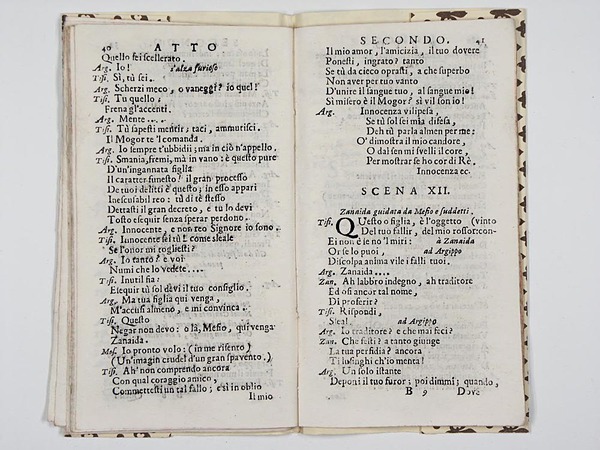 40 ATTO
Quello sei scellerato.
Arg. Io! s'alza furioso
Tisi. Sì, tù sei.
Arg. Scherzi meco, o vaneggi? io quel!
Tisi. Tu quello;
Frena gl'accenti.
Arg. Mente....
Tisi. Tù sapesti mentir; taci, ammutisci.
Il Mogor te'l comanda.
Arg. Io sempre t'ubbidii; ma in ciò n'appello.
Tisi. Smania, fremi, mà in vano: è questo pure
D'un'ingannata figlia
Il caratter funesto? il gran processo
De tuoi delitti è questo; in esso appari
Inescusabil reo: tù di tè stesso
Dettasti il gran decreto, e tu lo devi
Tosto eseguir senza sperar perdono.
Arg. Innocente, e non reo Signore io sono.
Tisi. Innocente sei tù! come sleale
Se l'onor mi togliesti?
Arg. Io tanto? e voi
Numi che lo vedete....
Tisi. Inutil fia:
Eseguir tù sol devi il tuo consiglio.
Arg. Ma tua figlia quì venga,
M'accusi almeno, e mi convinca.
Tisi. Questo
Negar non devo: olà, Mesio, quì venga
Zanaida.
Mes. Io pronto volo: (in me risento)
(Un'imagin crudel d'un gran spavento.)
Tisi. Ah! non comprendo ancora
Con qual coraggio amico,
Commettesti un tal fallo; e sì in oblio
Il mio
SECONDO. 41
Il mio amor, l'amicizia, il tuo dovere
Ponesti, ingrato? tanto
Se tù da cieco oprasti, a che superbo
Non aver per tuo vanto
D'unire il sangue tuo, al sangue mio!
Sì misero è il Mogor? sì vil son io!
Arg. Innocenza vilipesa,
Se tù sol sei mia difesa,
Deh tù parla almen per me;
O' dimostra il mio candore,
O dal sen mi svelli il core,
Per mostrar se ho cor di Rè.
Innocenza ec.
SCENA XII.
Zanaida guidata da Mesio e suddetti.
Tisi. QUesto o figlia, è l'oggetto (vinto
Del tuo fallir, del mio rossor: con-
Ei non è je no'l miri: à Zanaida
Or se lo puoi, ad Argippo
Discolpa anima vile i falli tuoi.
Arg. Zanaida....
Zan. Ah labbro indegno, ah traditore
Ed osi ancor tal nome,
Di proferir?
Tisi. Rispondi,
Sleal. ad Argippo
Arg. Io traditore? e che mai feci?
Zan. Che festi? a tanto giunge
La tua perfidia? ancora
Ti lusinghi ch'io menta!
Arg. Un solo istante
Deponi il tuo furor; poi dimmi; quando,
B 9 Dove